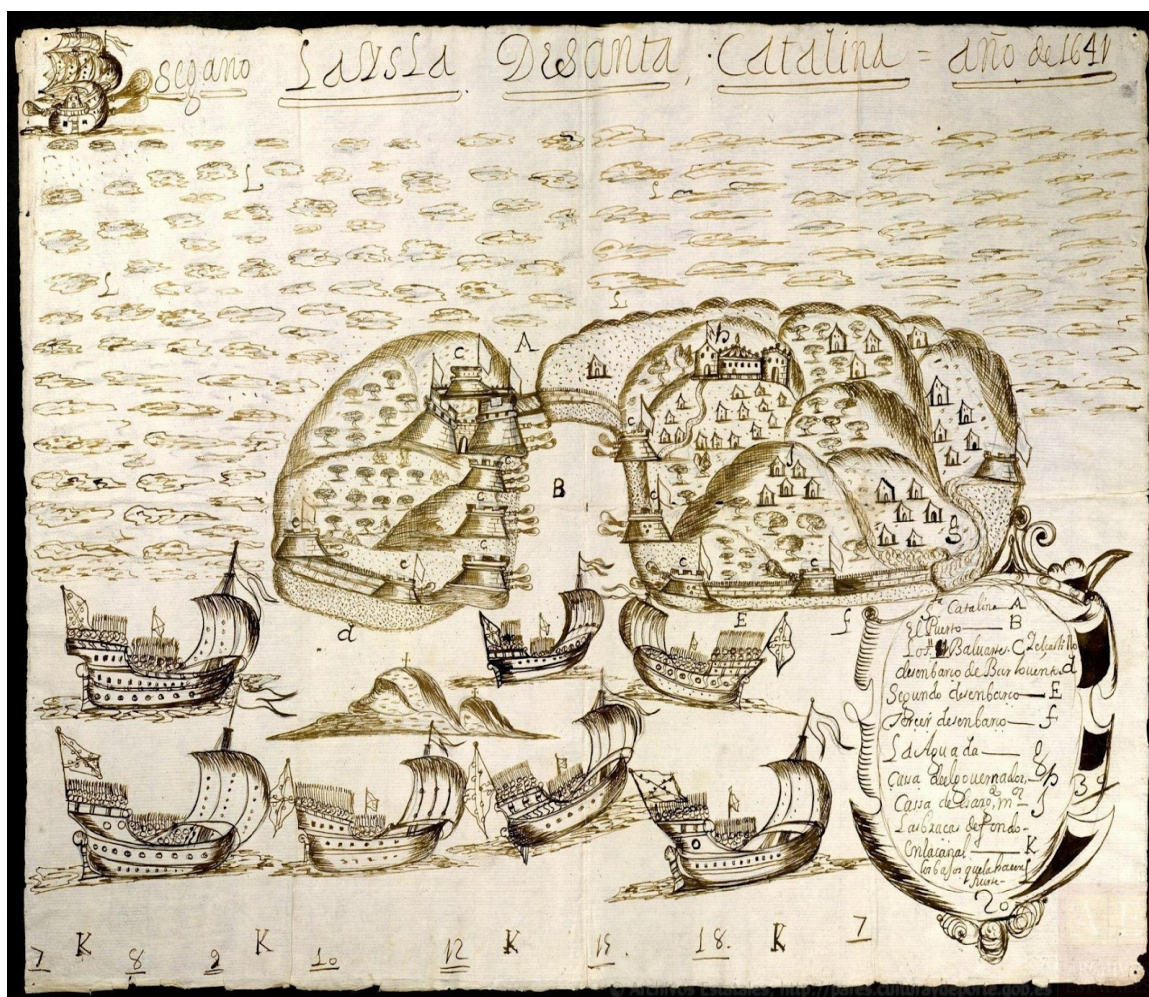 se gano La Ysla De Santa Catalina = año de 1641
L
L
L
L
A
C
h
C
C
B
C
C
C
C
C
C
C
g
d
E
f
Sta Catalina — A
El Puerto — B
Los Baluartes C
desenbarco de Barlovento d
Segundo desenbarco — E
Tercer desenbarco — f
La Aguada — g
Cassa del governador, h
Cassa de
Las bracas de fondo
en la canal — K
los bajos que la hacen
fuerte
20
39
7 K 8 9 K 10 12 K 15. 18. K 7